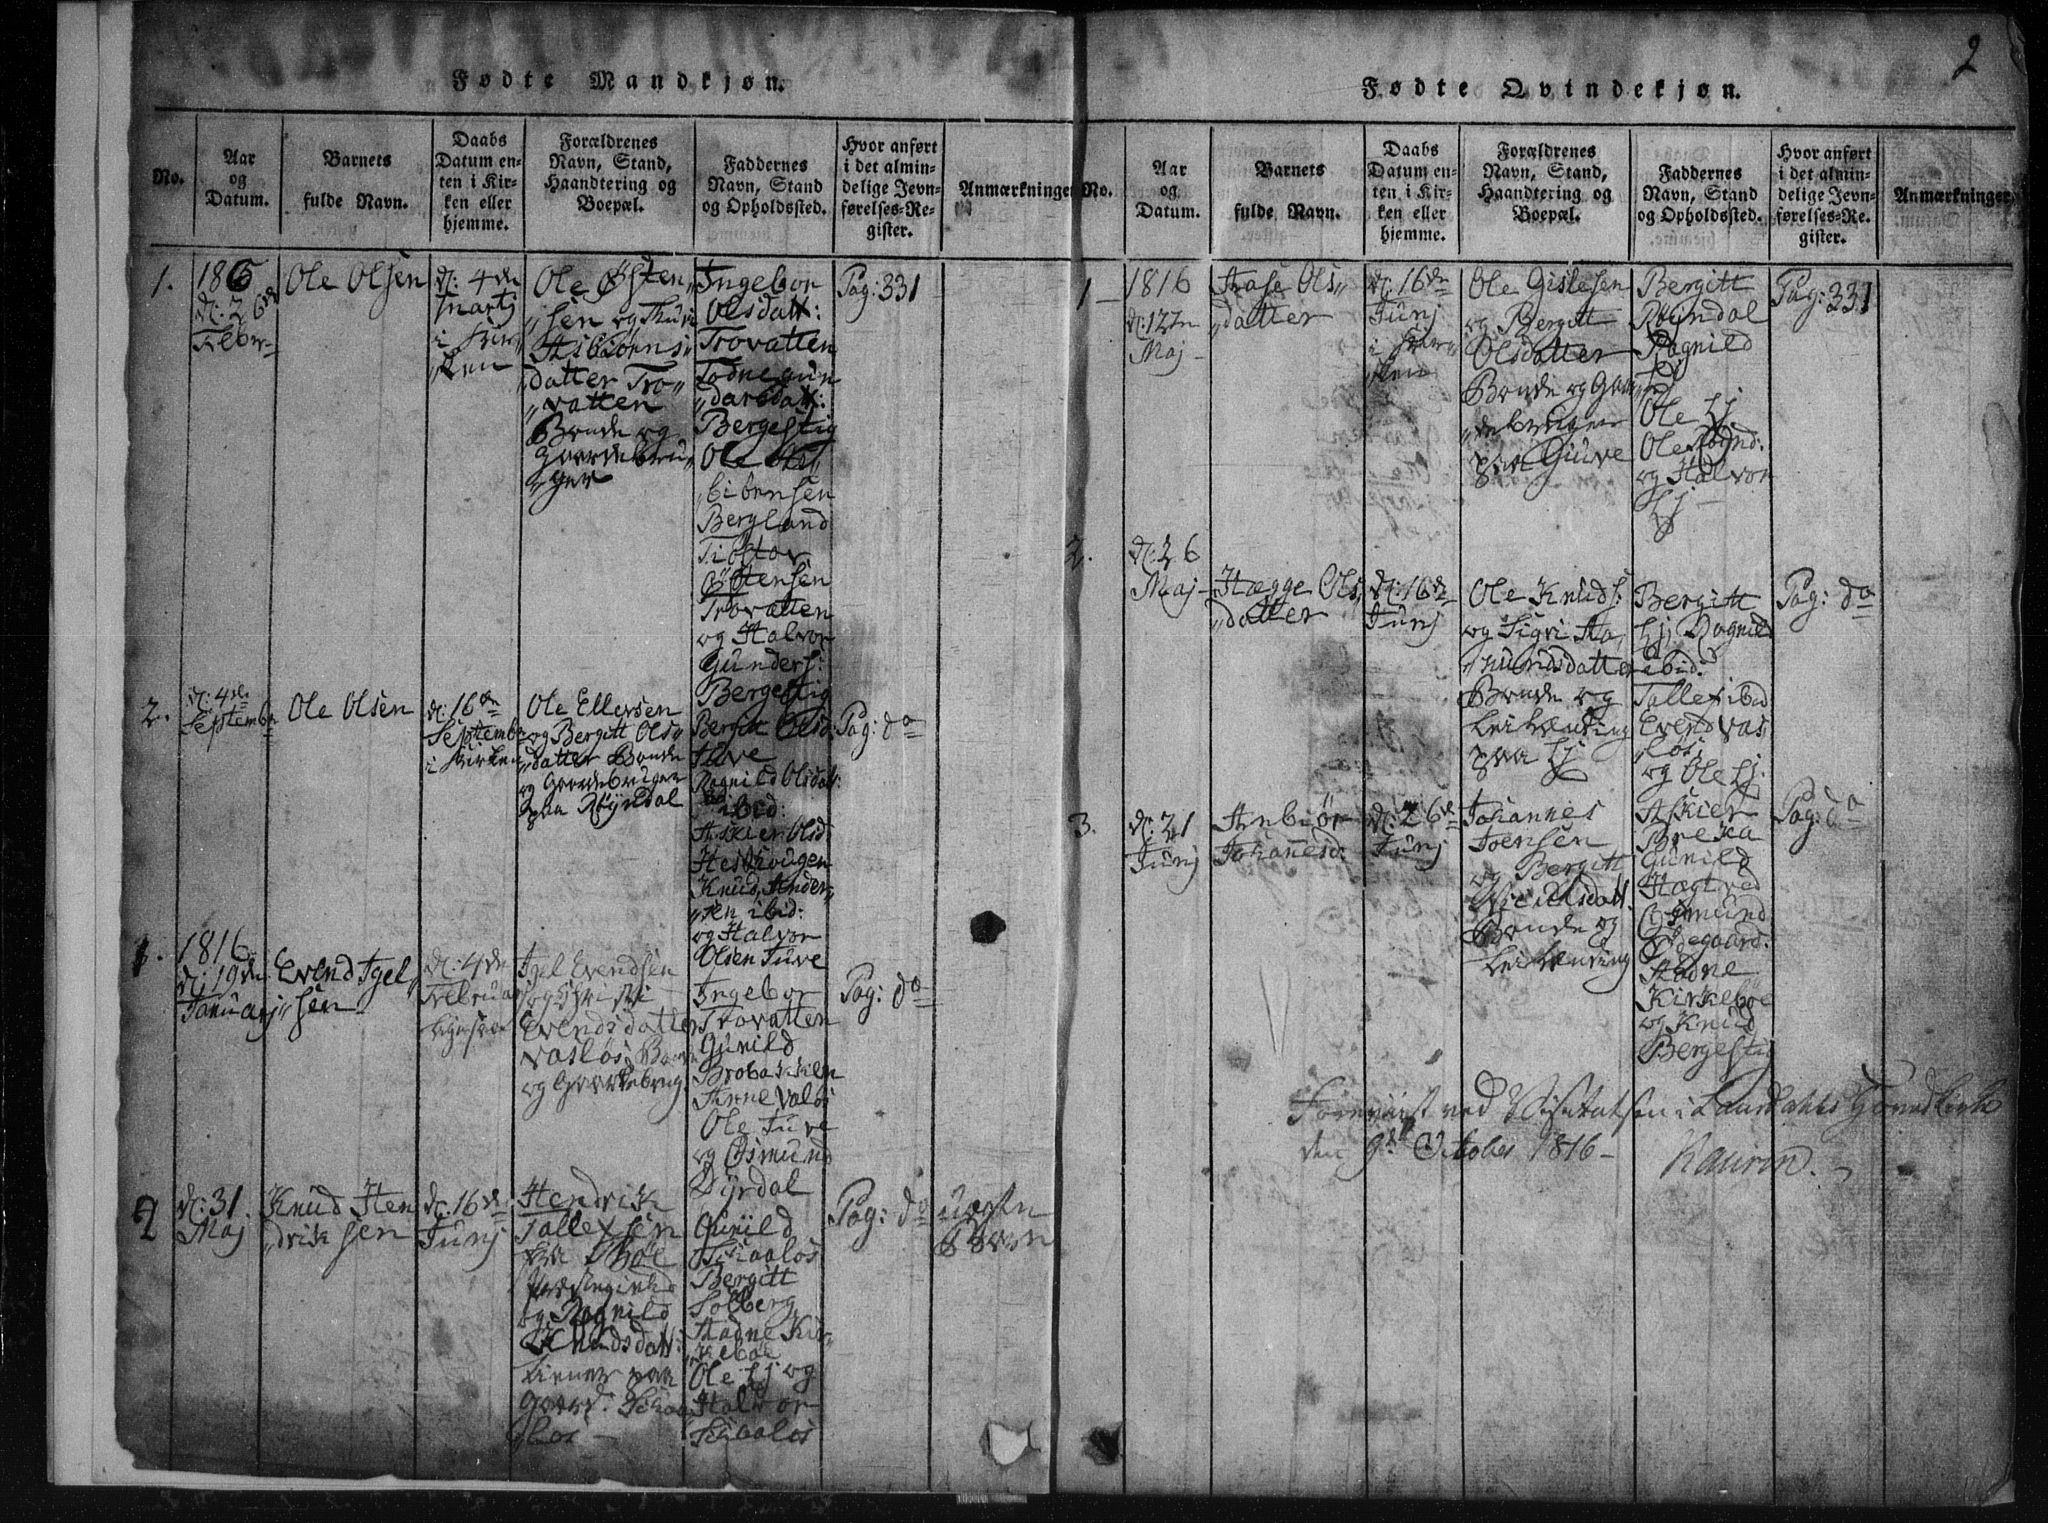 2
Fødte Mandkjøn.
No.
Aar
og
Datum.
Barnets
fulde Navn.
Daabs
Datum en-
ten i Kir-
ken eller
hjemme.
Forældrenes
Navn, Stand,
Haandtering og
Boepæl.
Faddernes
Navn, Stand
og Opholdssted.
Hvor anført
i det almin-
delige Jevn-
førelses-Re-
gister.
Anmærkninger
1.
d: 26de
Feber-
Ole Olsen
d: 4de
Marts
i Kir„
„ken
Ole Østen„
„sen og Thuri
Asbiørns„
datter Tro„
„vatten
Bonde og
Gaardebru„
„ger
Ingebor
Olsdatt:
Trovatten
Todne Gun
„darsdatt:
Bergestig
Ole
Bergland
Tiøstov
Østensen
Trovatten
og Halvor
Gunders:
Bergestig
Pag: 331
2.
d: 4de
Septembr
Ole Olsen
d: 16de
Septembr
i Kirken
Ole Ellevsen
og Bergitt Ols„
„datter Bonde
og Gaardebruger
paa Røyndal
Bergit Olsd:
Juve
Ragnild Olsdatt:
ibid:
Askier Olsd
Heskougen
Knud Ander„
„sen ibid:
og Halvor
Olsen Juve
Pag: do
1.
1816
d: 19de
Januarj
Evend Igel„
„sen
d: 4de
Februar
Igel Evendsen
og Christi
Evendsdatter
Vasløs Bonde
og Gaardebrug
Ingebor
Trovatten
Gunild
Brobakken
Anne Valøs
Ole Juve
og Osmund
Dyrdal
Pag: do
2
d: 31
Maj
Knud Hen
„drik sen
d: 16de
Junj
Hendrik
Tallexsen
og Ragnild
Knudsdatt:
tiener paa
Gaard: Skaa
løs —
Gunild
Skaaløs
Bergitt
Solberg
Aadne Kir„
„keboe
Ole Lj og
Halvor
Skaaløs
Pag: do
uægte
Barn
Fødte Qvindekjøn.
No.
Aar
og
Datum.
Barnets
fulde Navn.
Daabs
Datum en-
ten i Kir-
ken eller
hjemme.
Forældrenes
Navn, Stand,
Haandtering og
Boepæl.
Faddernes
Navn, Stand
og Opholdssted.
Hvor anført
i det almin-
delige Jevn-
førelses-Re-
gister.
Anmærkninger
1
1816
d: 12te
Maj
Aase Ols„
„datter
d: 16de
Junj
i Kir„
„ken
Ole Gislesen
og Bergitt
Olsdatter
Bonde og Gaar„
„debruger
paa Giuve
Bergitt
Røyndal
Ragnild
Lj
Ole Lj
Ole Røynd:
og Halvor
Lj
Pag: 331
2.
d: 26
Maj
Hægge Ols„
„datter
d: 16de
Junj
Ole Knuds:
og Sigri Aa„
„mundsdatter
Bonde og
Leilænding
paa Lj
Bergitt
Lj, Ragnild
ibid:
Tallex ibid
Evend Vas„
„løs
og Ole Lj.
Pag: do
3.
d: 21
Junj
Anbiør
Johanesd:
d: 26de
Junj
Johannes
Joensen
og Bergitt
Bonde og
Leilænding
Askier
Breka
Gunild
Hægtved
Osmund
Ødegaard:
Aadne
Kirkeboe
og Knud
Bergestig
Pag: do
Foreviist ved Visitatsen i Laurdahls Hovedkirke
den 9de October 1816 —
Kaurin.